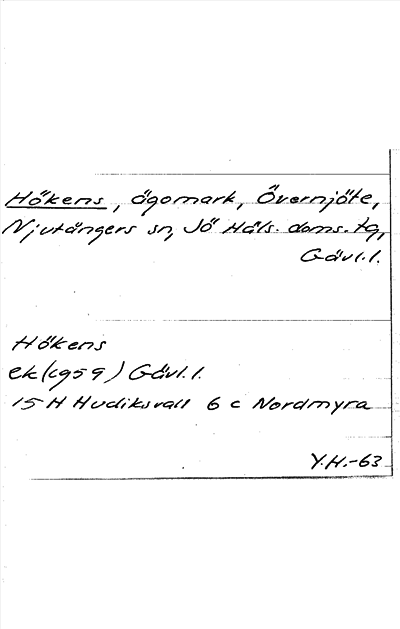 Hökens, ägomark, Övernjöte,
Njutångers sn, Jö Häls. doms. tg,
Gävl.l.
Hökens
ek (1959) Gävl.l.
15 H Hudiksvall 6 c Nordmyra
Y.H.-63